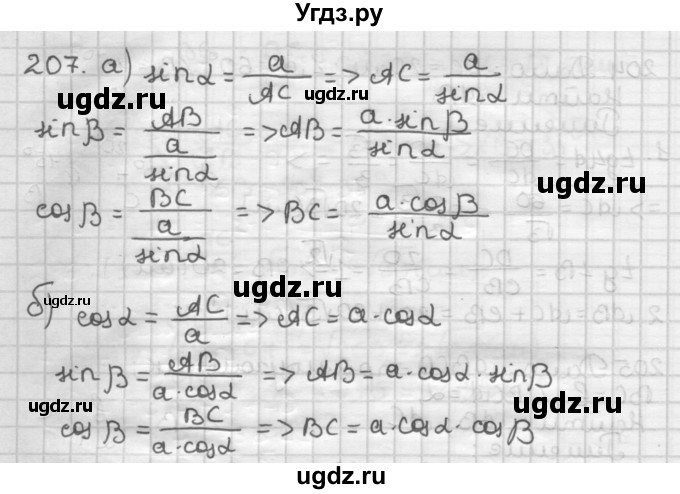 Угдз.ру
207. а) sinα = a/AC => AC = a/sinα
ugdz.ru
ugdz.ru
sinβ = AB/(a/sinα) => AB = a·sinβ/sinα
ugdz.ru
cosβ = BC/(a/sinα) => BC = a·cosβ/sinα
ugdz.ru
ugdz.ru
б) cosα = AC/a => AC = a·cosα
sinβ = AB/(a·cosα) => AB = a·cosα·sinβ
ugdz.ru
ugdz.ru
cosβ = BC/(a·cosα) => BC = a·cosα·cosβ
ugdz.ru